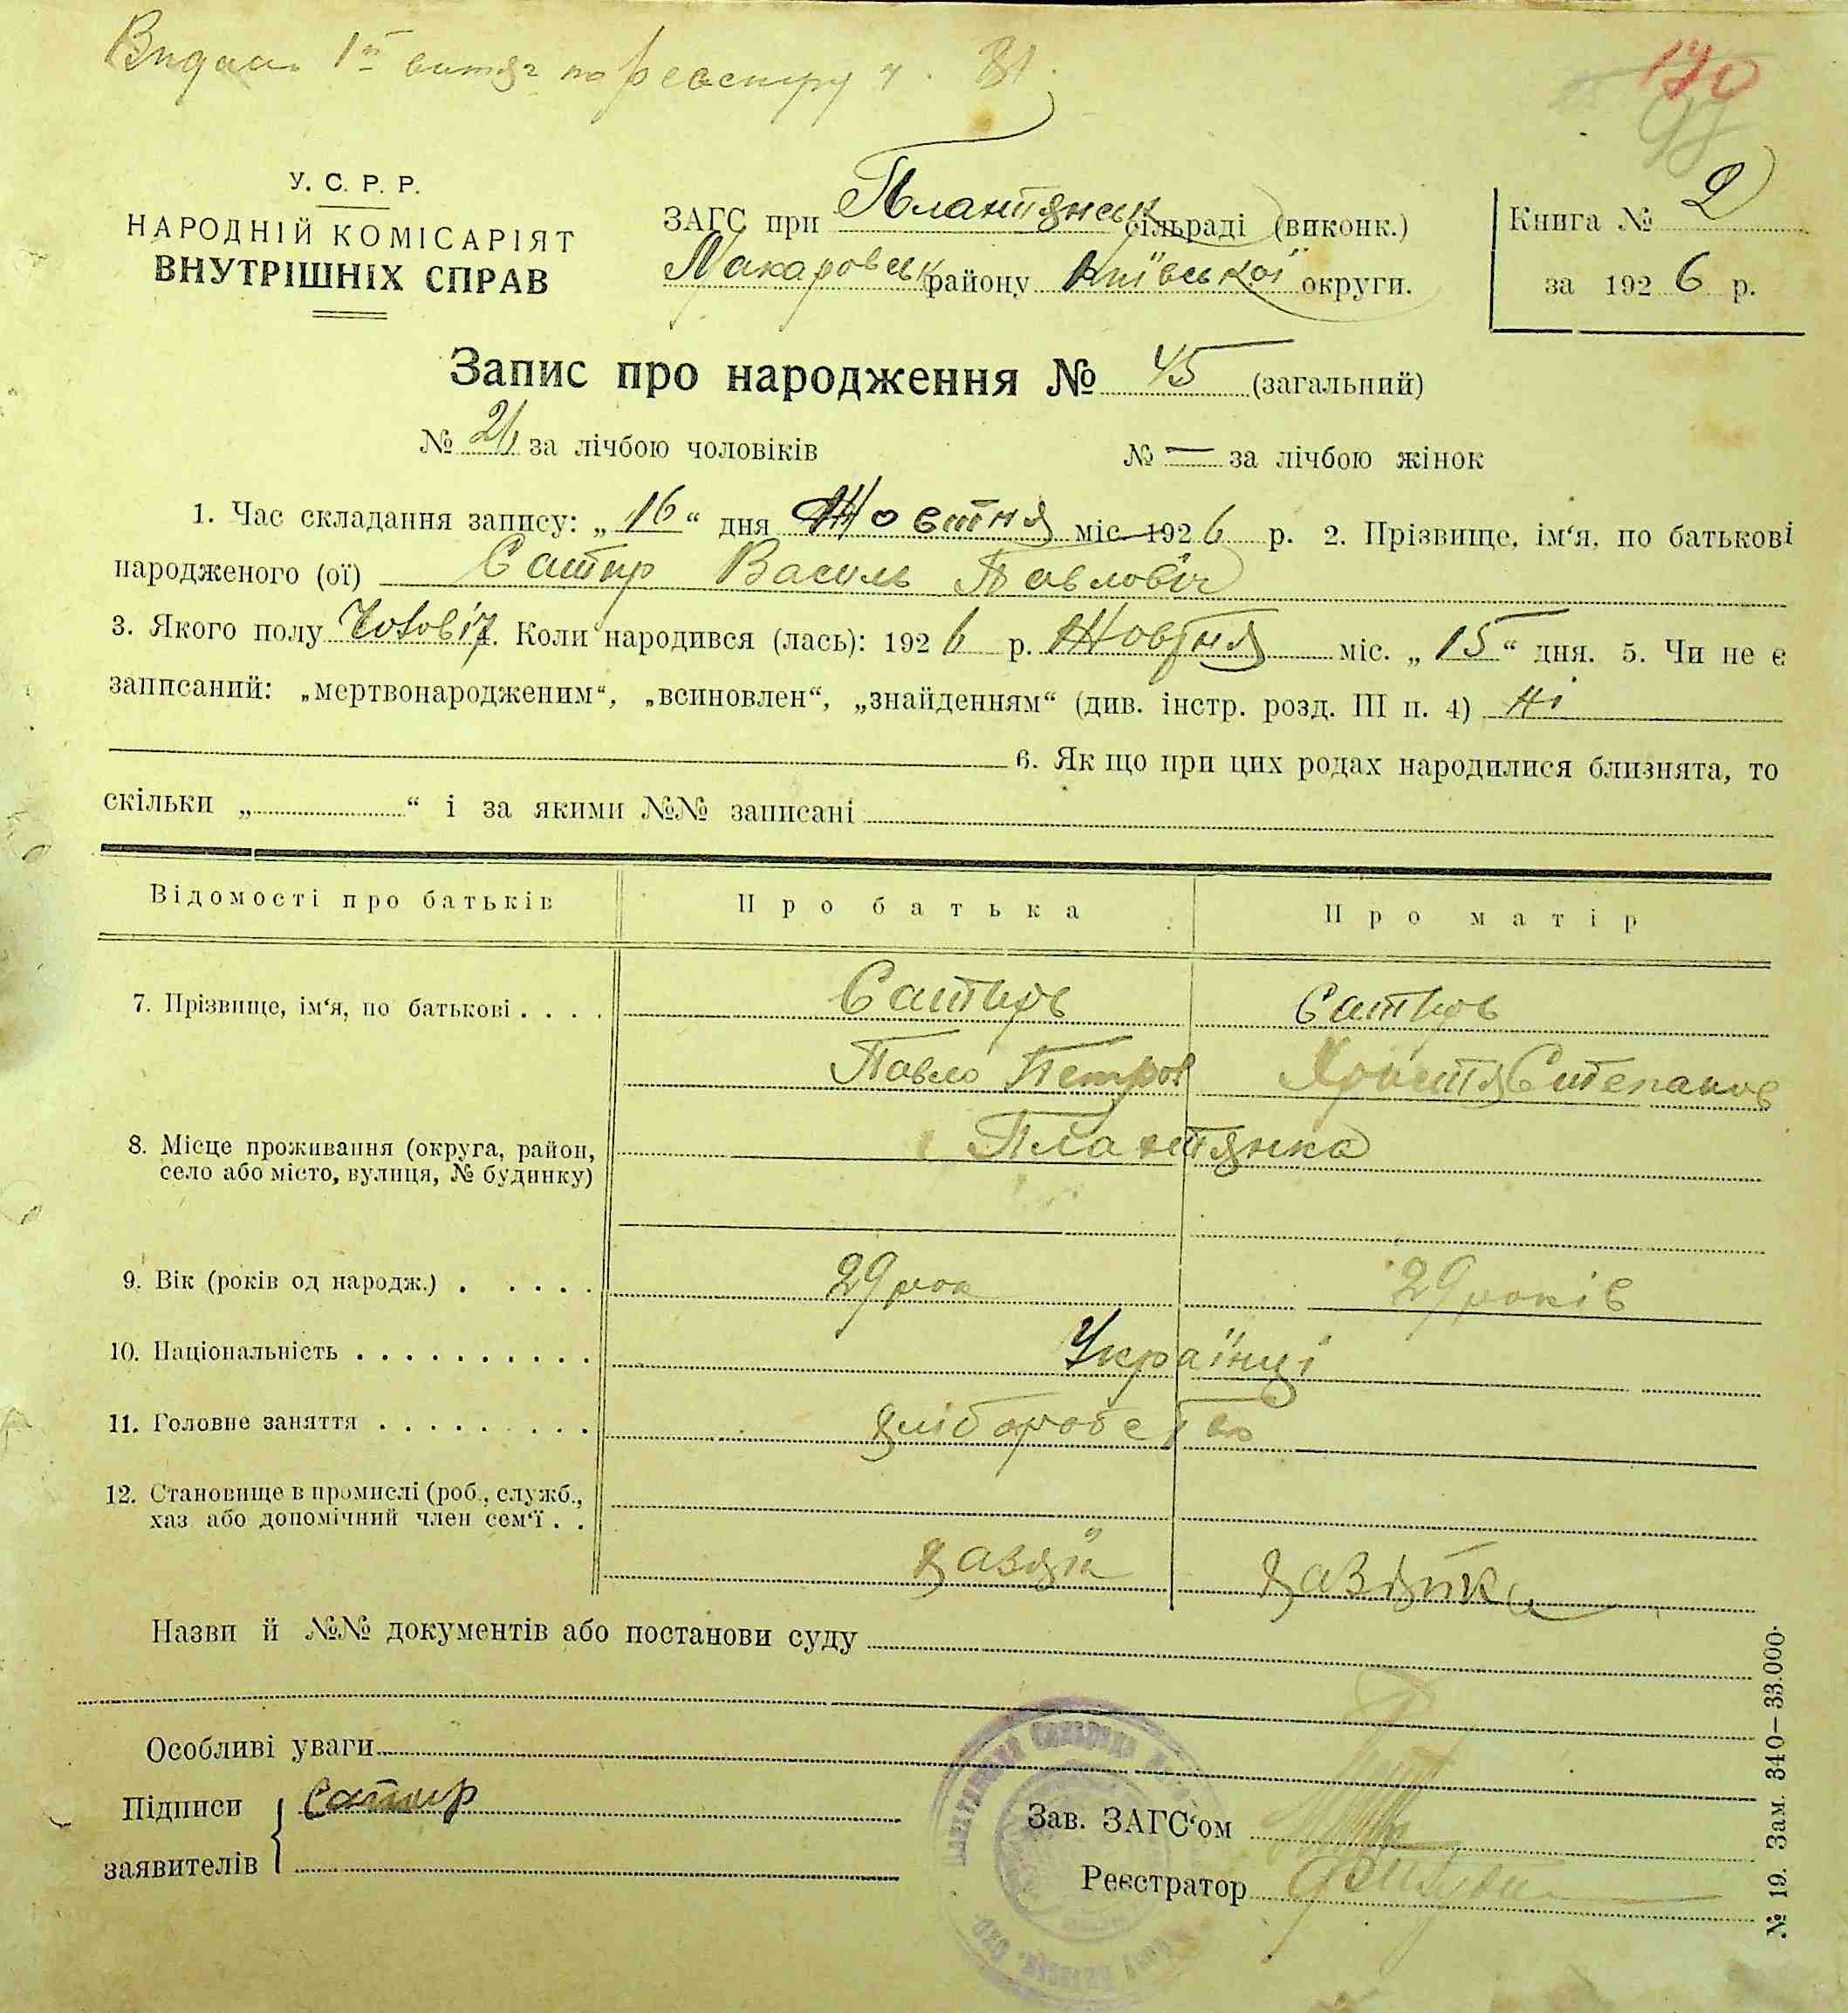 Видан. 1й витяг по реєстру ч. 81.
170
98
У. С. Р. Р.
НАРОДНІЙ КОМІСАРІЯТ
ВНУТРІШНІХ СПРАВ
ЗАГС при Плантянськ сільраді (виконк.)
Макаровськ району Київської округи.
Книга № 2
за 1926 р.
Запис про народження № 45 (загальний)
№ 21 за лічбою чоловіків № — за лічбою жінок
1. Час складання запису: „16“ дня Жовтня міс 1926 р. 2. Прізвище, ім‘я, по батькові
народженого (ої) Сатир Василь Павлович
3. Якого полу Чоловіч. Коли народився (лась): 1926 р. Жовтня міс. „15“ дня. 5. Чи не є
записаний: „мертвонародженим“, „всиновлен“, „знайденням“ (див. інстр. розд. III п. 4) Ні
6. Як що при цих родах народилися близнята, то
скільки „ “ і за якими №№ записані
Відомості про батьків Про батька Про матір
7. Прізвище, ім‘я, по батькові . . . . Сатиръ Сатиръ
Павло Петров Христя Степанов
8. Місце проживання (округа, район, Плантянка
село або місто, вулиця, № будинку)
9. Вік (років од народж.) . . . . . 29 рок 29 років
10. Національність . . . . . . . . . . Українці
11. Головне заняття . . . . . . . . . хліборобство
12. Становище в промислі (роб., служб.,
хаз або допомічний член сем‘ї . .
хазяїн хазяйка
Назви й №№ документів або постанови суду
Особливі уваги
Підписи Сатир
заявителів
Зав. ЗАГС‘ом
Реєстратор
№ 19. Зам. 340—33.000.